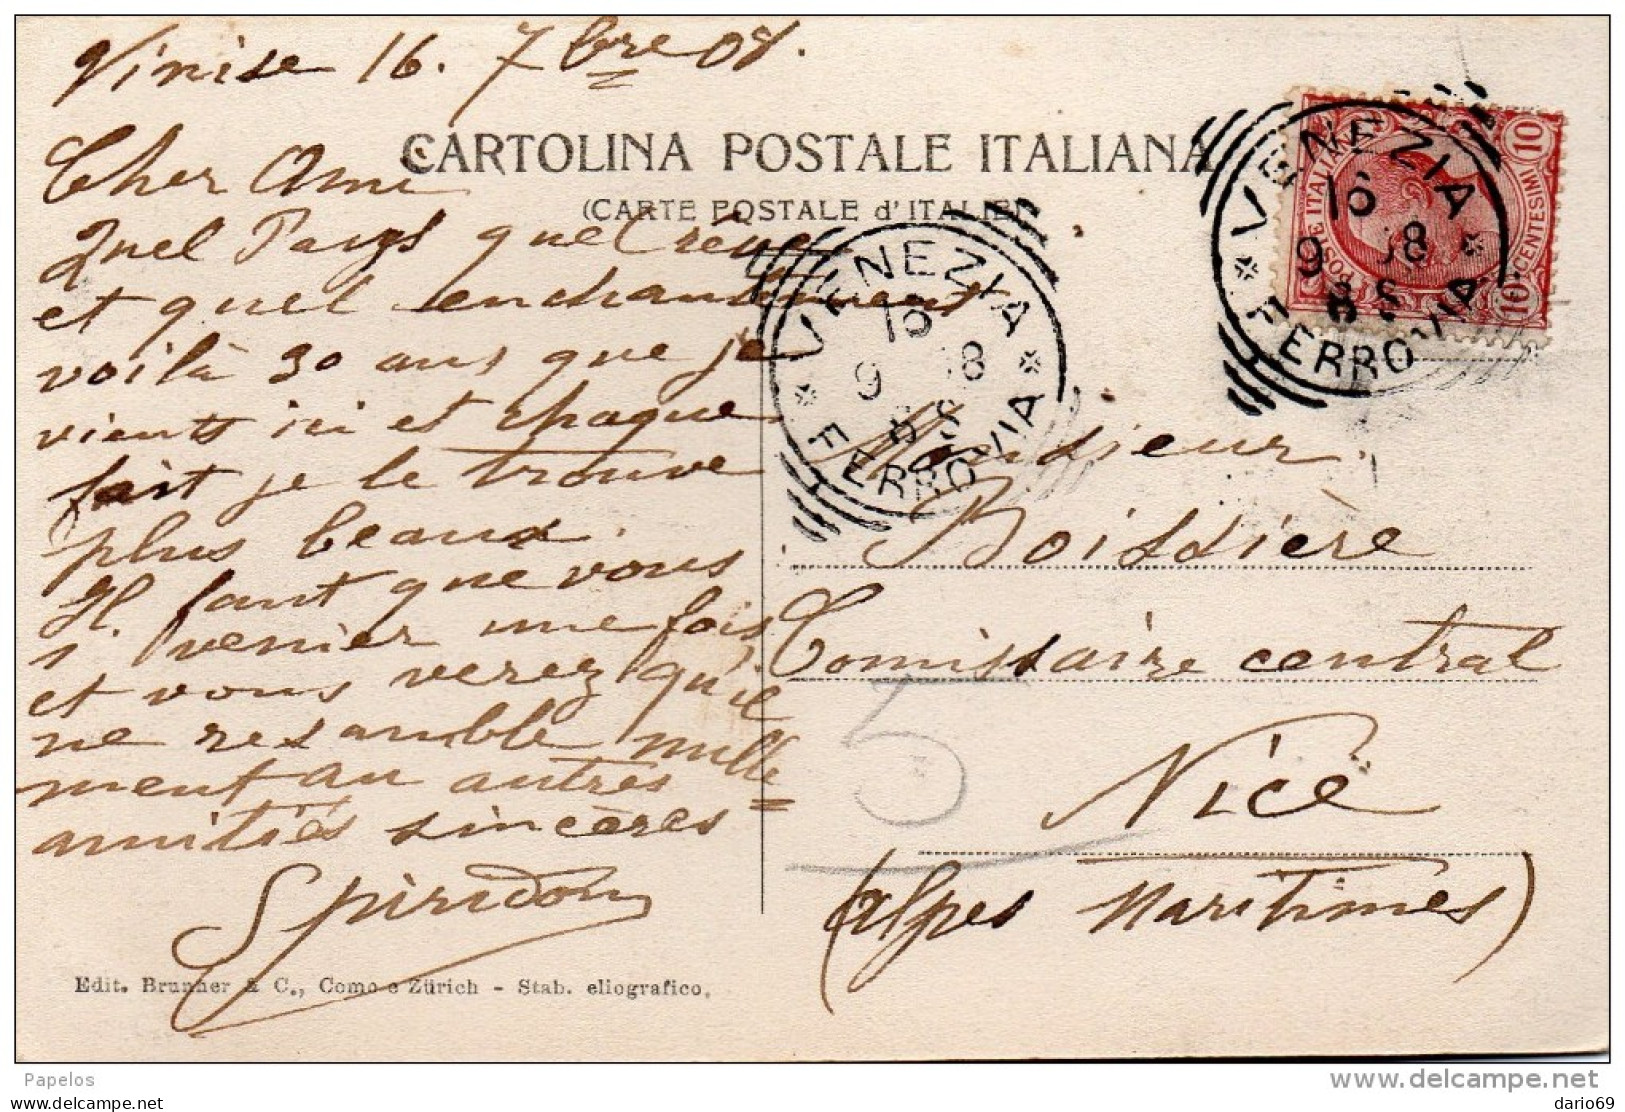 Vinise 16. 7bre 08.
CARTOLINA POSTALE ITALIANA
(CARTE POSTALE d'ITALIE)
Cher Ami
Quel Pays quel rêve
et quel enchantement
voilà 30 ans que je
viens ici et chaque
fait je le trouve
plus beaux.
Il faut que vous
y venier une fois
et vous verez qu'il
ne resamble nulle
ment au autres
amitiés sincères
Spiridon
Edit. Brunner & C., Como e Zürich - Stab. eliografico.
VENEZIA
16
9 08
8 S
FERROVIA
VENEZIA
16
9 08
8 S
FERROVIA
POSTE ITALIANE
10 CENTESIMI 10
Monsieur.
Boissière
Comissaire central
Nice
(alpes Maritimes)
5
Papelos
www.delcampe.net
delcampe.net
dario69